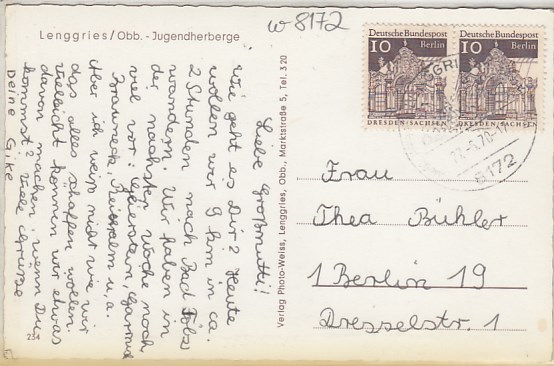 w 8172
Lenggries/Obb. - Jugendherberge
Liebe Großmutti!
Wie geht es Dir? Heute
wollen wir 9 km in ca.
2 Stunden nach Bad Tölz
wandern. Wir haben in
der nächsten Woche noch
viel vor: Geierstein,
Brauneck, u.a.
Aber ich weiß nicht wie wir
das alles schaffen wollen.
Vielleicht können wir etwas
davon machen, wenn Du
kommst? Viele Grüße
Deine Gike
254
Verlag Photo-Weiss, Lenggries, Obb., Marktstraße 5, Tel. 320
Deutsche Bundespost
10 Berlin
DRESDEN/SACHSEN
Deutsche Bundespost
10 Berlin
DRESDEN/SACHSEN
8172
Frau
Thea Bühler
1 Berlin 19
Dresselstr. 1